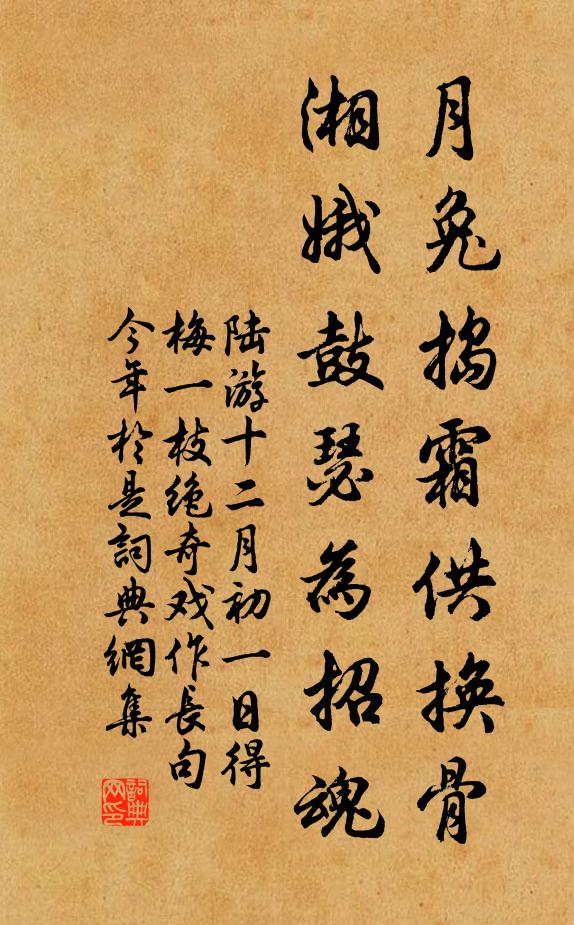 月兔搗霜供換骨
湘娥鼓瑟為招魂
陆游十二月初一日得
梅一枝绝奇戏作長句
今年於是詞典網集
詞典
网印